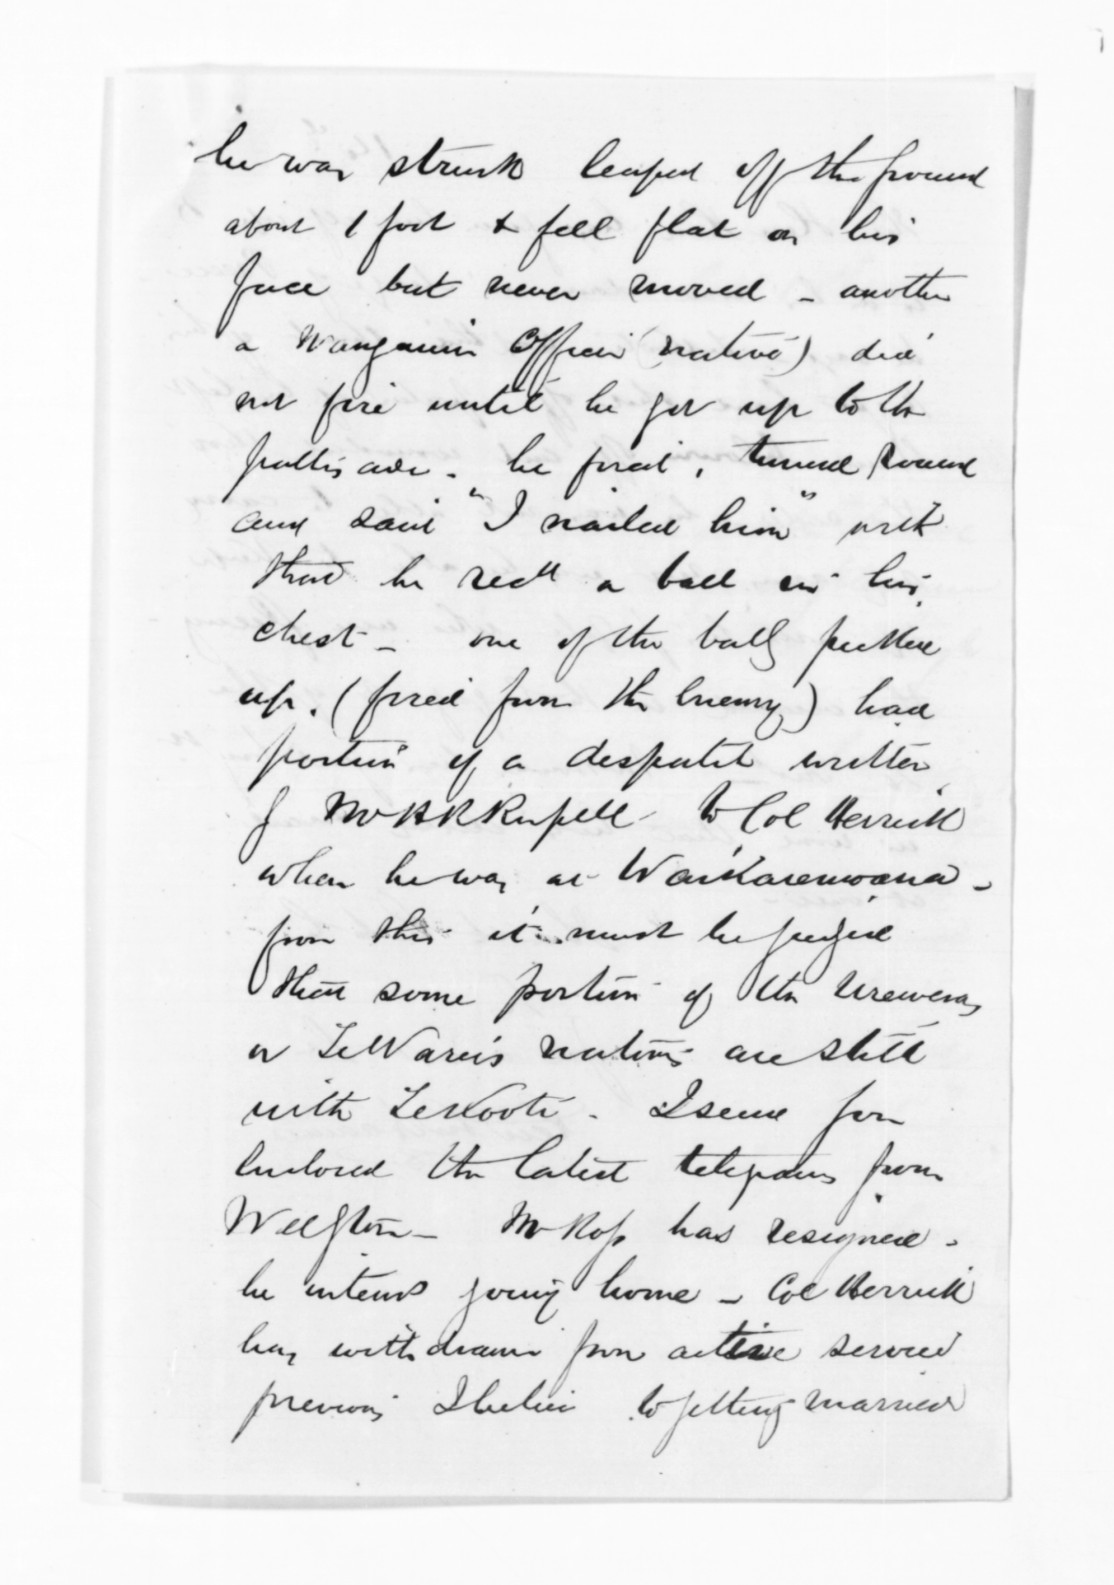 he was struck leaped off the ground
about 1 foot & fell flat on his
face but never moved - another
a Wanganui Officer (native) did
not fire until he got up to the
pallisade - he fired, turned round
and said "I nailed him" with
that he recd a ball in his
chest - one of the balls picked
up. (fired from the Enemy) had
portion of a despatch written
by Mr H R Russell to Col Herrick
when he was at Waikaremoana -
from this it must be judged
that some portion of the Urewera,
or Te Waru's natives are still
with TeKooti - I send you
enclosed the latest telegrams from
Wellgton - Mr Ross has resigned -
he intends going home - Col Herrick
has withdrawn from active service
previous I believe to getting married